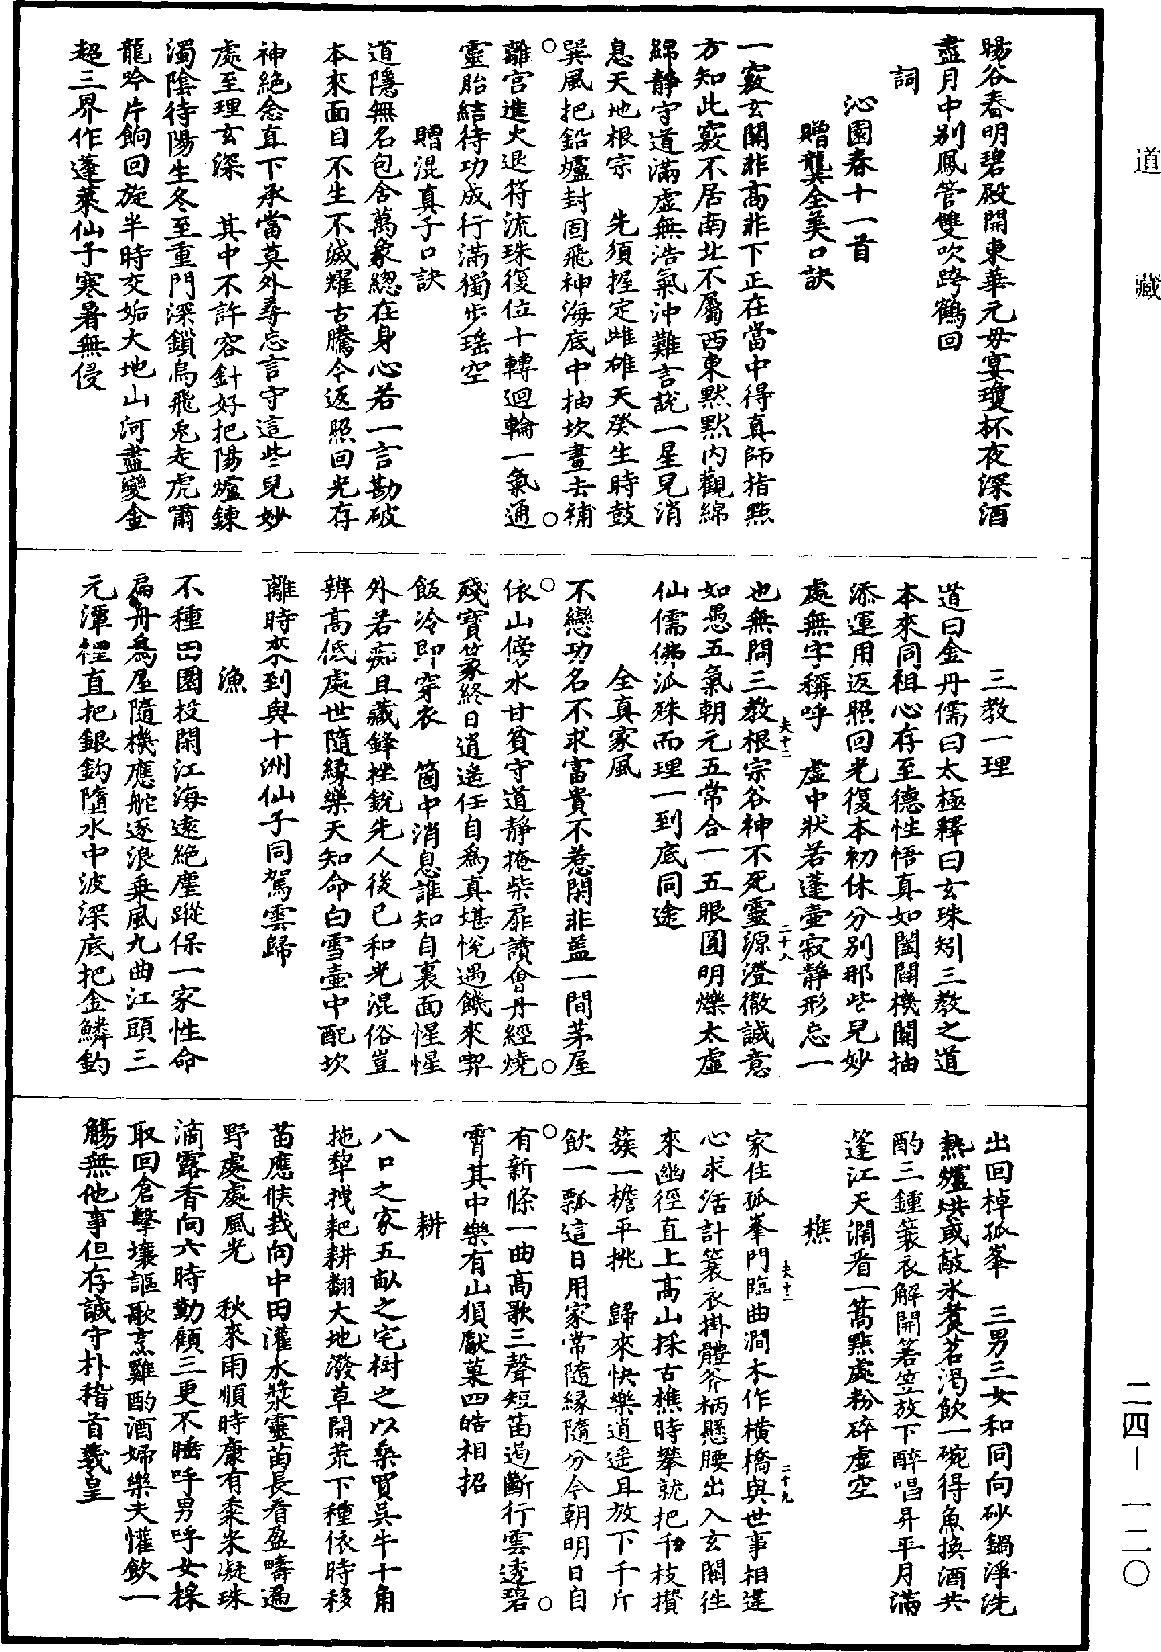 道藏
暘谷春明碧殿開東華元母宴瓊杯夜深酒
盡月中别鳳管雙吹跨鶴回
詞
沁園春十一首
贈龔全美口訣
一竅玄關非高非下正在當中得真師指點
方知此竅不居南北不屬西東默默内觀綿
綿靜守道滿虚無浩氣沖難言説一星兒消
息天地根宗　先須握定雌雄天癸生時鼓
巽風把鉛爐封固飛神海底中抽坎畫去補
離宫進火退符流珠復位十轉迴輪一氣通
靈胎結待功成行滿獨步瑶空
贈混真子口訣
道隱無名包含萬象緫在身心若一言勘破
本來面目不生不滅耀古騰今返照回光存
神絶念直下承當莫外尋忘言守這些兒妙
處至理玄深　其中不許容針好把陽爐鍊
濁陰待陽生冬至重門深鎖烏飛兎走虎嘯
龍吟片餉回旋半時交姤大地山河盡變金
超三界作蓬萊仙子寒暑無侵
三教一理
道曰金丹儒曰太極釋曰玄珠矧三教之道
本來同祖心存至德性悟真如闔闢機關抽
添運用返照回光復本初休分别那些兒妙
處無字稱呼　虚中狀若蓬壷寂静形忘一
也無問三教根宗谷神不死靈源澄徹誠意
夫十二
二十八
如愚五氣朝元五常合一五眼圓明爍太虚
仙儒佛派殊而理一到底同途
全真家風
不戀功名不求富貴不惹閑非盖一間茅屋
依山傍水甘貧守道静掩柴扉讀會丹經燒
殘寶篆終日逍遥任自爲真堪悦遇饑來喫
飯冷即穿衣　箇中消息誰知自裏面惺惺
外若痴且藏鋒挫銳先人後己和光混俗豈
辨高低處世隨緣樂天知命白雪壷中配坎
離時來到與十洲仙子同駕雲歸
漁
不種田園投閑江海遠絶塵蹤保一家性命
扁舟爲屋隨機應舵逐浪乘風九曲江頭三
元潭裡直把銀鈎隨水中波深底把金鱗釣
出回棹孤峯　三男三女和同向砂鍋淨洗
熱爐烘或敲氷煑茗渴飲一碗得魚換酒共
酌三鍾蓑衣解開箬笠放下醉唱昇平月滿
蓬江天濶看一篙點處粉碎虚空
樵
家住孤峯門臨曲澗木作横橋與世事相違
夫十二
二十九
心求活計蓑衣掛體斧柄懸腰出入玄關往
來幽徑直上高山採古樵時攀就把千枝攅
簇一檐平挑　歸來快樂逍遥且放下千斤
飲一瓢這日用家常隨緣隨分今朝明日自
有新條一曲高歌三聲短笛遏斷行雲透碧
霄其中樂有山猿獻菓四皓相招
耕
八口之家五畝之宅樹之以桑買吳牛十角
拖犁拽耙耕翻大地潑草開荒下種依時移
苗應候我向中田灌水漿靈苗長看盈疇遍
野處處風光　秋來雨順時康有粢米凝珠
滴露香向六時勤顧三更不睡呼男呼女採
取回倉擊壤謳歌烹雞酌酒婦樂夫懽飲一
觴無他事但存誠守朴稽首羲皇
二四—一二〇